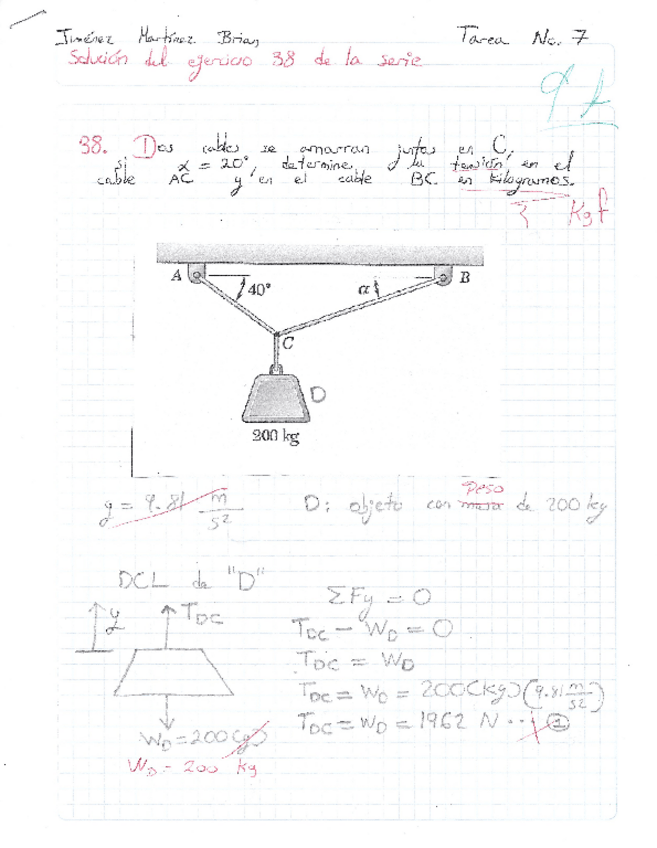 Jiménez Martínez Brian Tarea No. 7
Solución del ejercicio 38 de la serie
38. Dos cables se amarran juntos en C,
si α = 20°, determine la tensión en el
cable AC y en el cable BC. en kilogramos.
Kgf
A 40° α B
C
D
200 kg
g = 9.81 m/s²
peso
D: objeto con masa de 200 kg
DCL de "D"
y
T_DC
W_D = 200(g)
W_D = 200 kg
ΣFy = 0
T_DC − W_D = 0
T_DC = W_D
T_DC = W_D = 200(kg)(9.81 m/s²)
T_DC = W_D = 1962 N